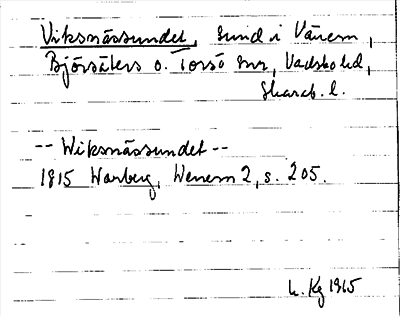 Viksnässundet, sund i Vänern,
Björsäters o. Torsö snr, Vadsbo hd,
Skarab. l.
-- Wiksnässundet --
1815 Warberg, Wenern 2, s. 205.
h. Kg 1965